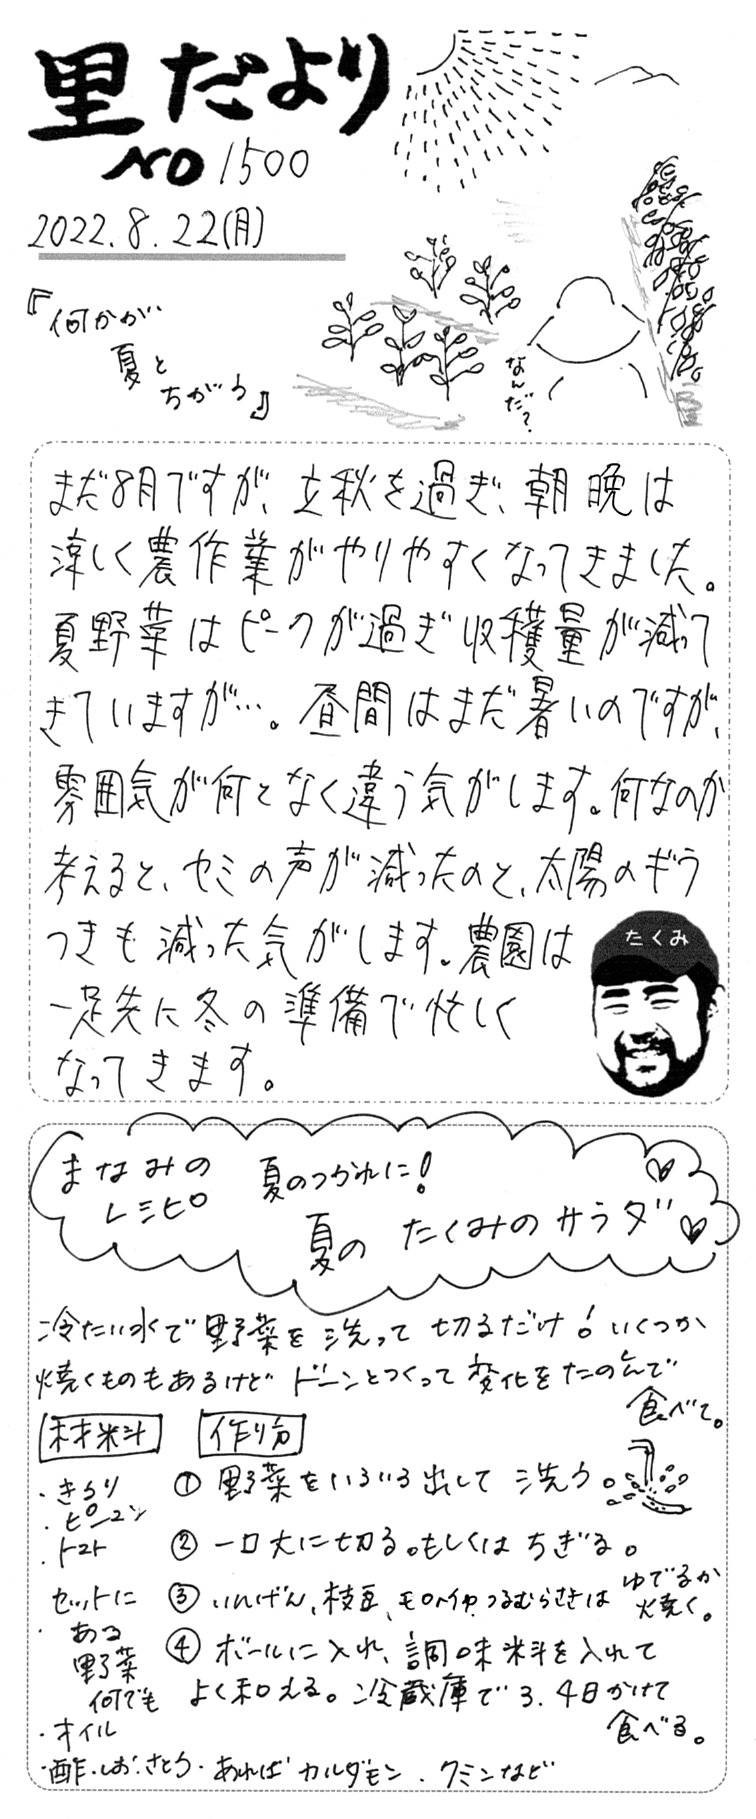 里だより
NO 1500
2022.8.22(月)
『何かが
夏と
ちがう』
なんだ?
まだ8月ですが、立秋を過ぎ、朝晩は
涼しく農作業がやりやすくなってきました。
夏野菜はピークが過ぎ収穫量が減って
きていますが…。昼間はまだ暑いのですが、
雰囲気が何となく違う気がします。何なのか
考えると、セミの声が減ったのと、太陽のギラ
つきも減った気がします。農園は
一足先に冬の準備で忙しく
なってきます。
たくみ
まなみの
レシピ
夏のつかれに!
夏の たくみのサラダ
冷たい水で野菜を洗って切るだけ!いくつか
焼くものもあるけどドーンとつくって変化をたのんで
食べて。
材料
作り方
・きうり
・ピーマン
・トマト
セットに
・ある
野菜
何でも
・オイル
・酢・しお・さとう・あればカルダモン、クミンなど
① 野菜をいろいろ出して洗う。
② 一口大に切る。もしくはちぎる。
③ いんげん、枝豆、モロヘイヤ、つるむらさきは ゆでるか
焼く。
④ ボールに入れ、調味料を入れて
よく和える。冷蔵庫で3、4日かけて
食べる。